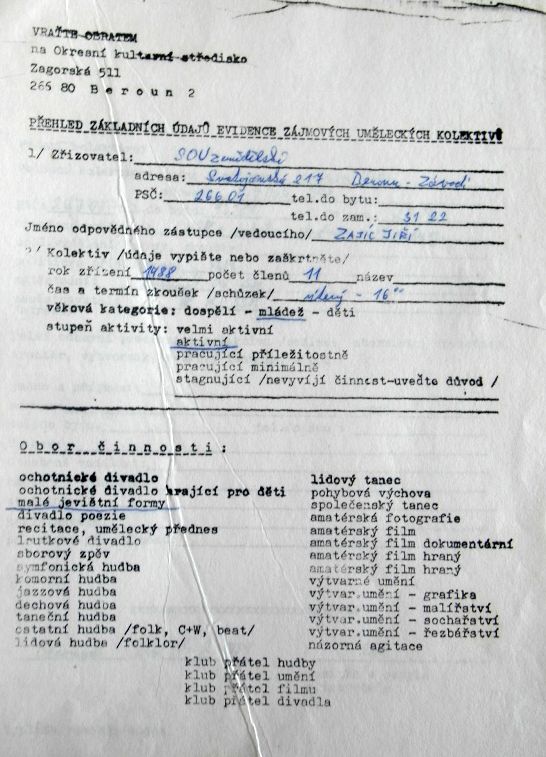 VRAŤTE OBRATEM
na Okresní kulturní středisko
Zagorská 511
265 80 B e r o u n 2
PŘEHLED ZÁKLADNÍCH ÚDAJŮ EVIDENCE ZÁJMOVÝCH UMĚLECKÝCH KOLEKTIVŮ
1/ Zřizovatel: SOU zemědělské
adresa: Svatojanská 217 Beroun - Závodí
PSČ: 266 01 tel.do bytu:
tel.do zam.: 31 22
Jméno odpovědného zástupce /vedoucího/ ZAJÍC JIŘÍ
2/ Kolektiv /údaje vypište nebo zaškrtněte/
rok zřízení 1988 počet členů 11 název
čas a termín zkoušek /schůzek/ úterý - 16⁰⁰
věková kategorie: dospělí - mládež - děti
stupeň aktivity: velmi aktivní
aktivní
pracující příležitostně
pracující minimálně
stagnující /nevyvíjí činnost-uveďte důvod /
O b o r č i n n o s t i :
ochotnické divadlo
ochotnické divadlo hrající pro děti
malé jevištní formy
divadlo poezie
recitace, umělecký přednes
loutkové divadlo
sborový zpěv
symfonická hudba
komorní hudba
jazzová hudba
dechová hudba
taneční hudba
ostatní hudba /folk, C+W, beat/
lidová hudba /folklor/
lidový tanec
pohybová výchova
společenský tanec
amatérská fotografie
amatérský film
amatérský film dokumentární
amatérský film hraný
amatérský film hraný
výtvarné umění
výtvar.umění - grafika
výtvar.umění - malířství
výtvar.umění - sochařství
výtvar.umění - řezbářství
názorná agitace
klub přátel hudby
klub přátel umění
klub přátel filmu
klub přátel divadla